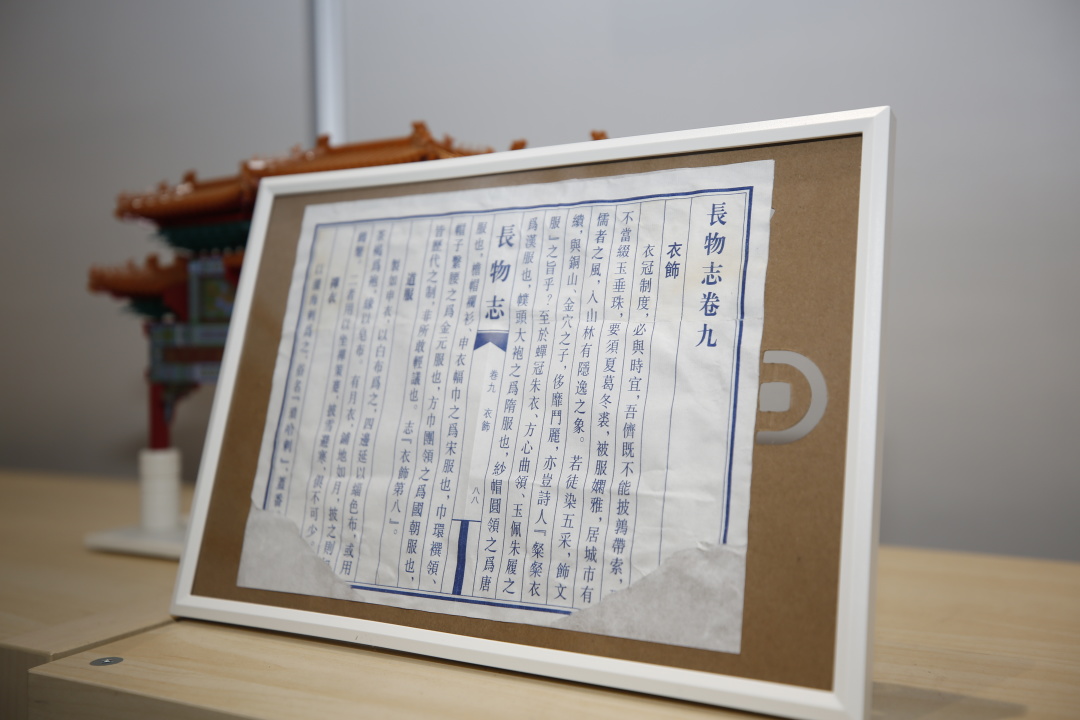 長物志卷九
衣飾
衣冠制度，必與時宜，吾儕既不能披鶉帶索，
不當綴玉垂珠，要須夏葛冬裘，被服嫻雅，居城市有
儒者之風，入山林有隱逸之象。若徒染五采，飾文
繢，與銅山、金穴之子，侈靡鬥麗，亦豈詩人『粲粲衣
服』之旨乎？至於蟬冠朱衣、方心曲領、玉佩朱履之
爲漢服也，幞頭大袍之爲隋服也，紗帽圓領之爲唐
長物志
卷九 衣飾
八八
服也，檐帽襴衫、申衣幅巾之爲宋服也，巾環襈領、
帽子繫腰之爲金元服也，方巾團領之爲國朝服也，
皆歷代之制，非所敢輕議也。志『衣飾第八』。
道服
製如申衣，以白布爲之，四邊延以緇色布，或用
茶褐爲袍，緣以皂布。有月衣，鋪地如月，披之則
鶴氅。二者用以坐禪策蹇，披雪避寒，俱不可少
禪衣
以灑海剌爲之，俗名『瑣哈剌』，蓋番